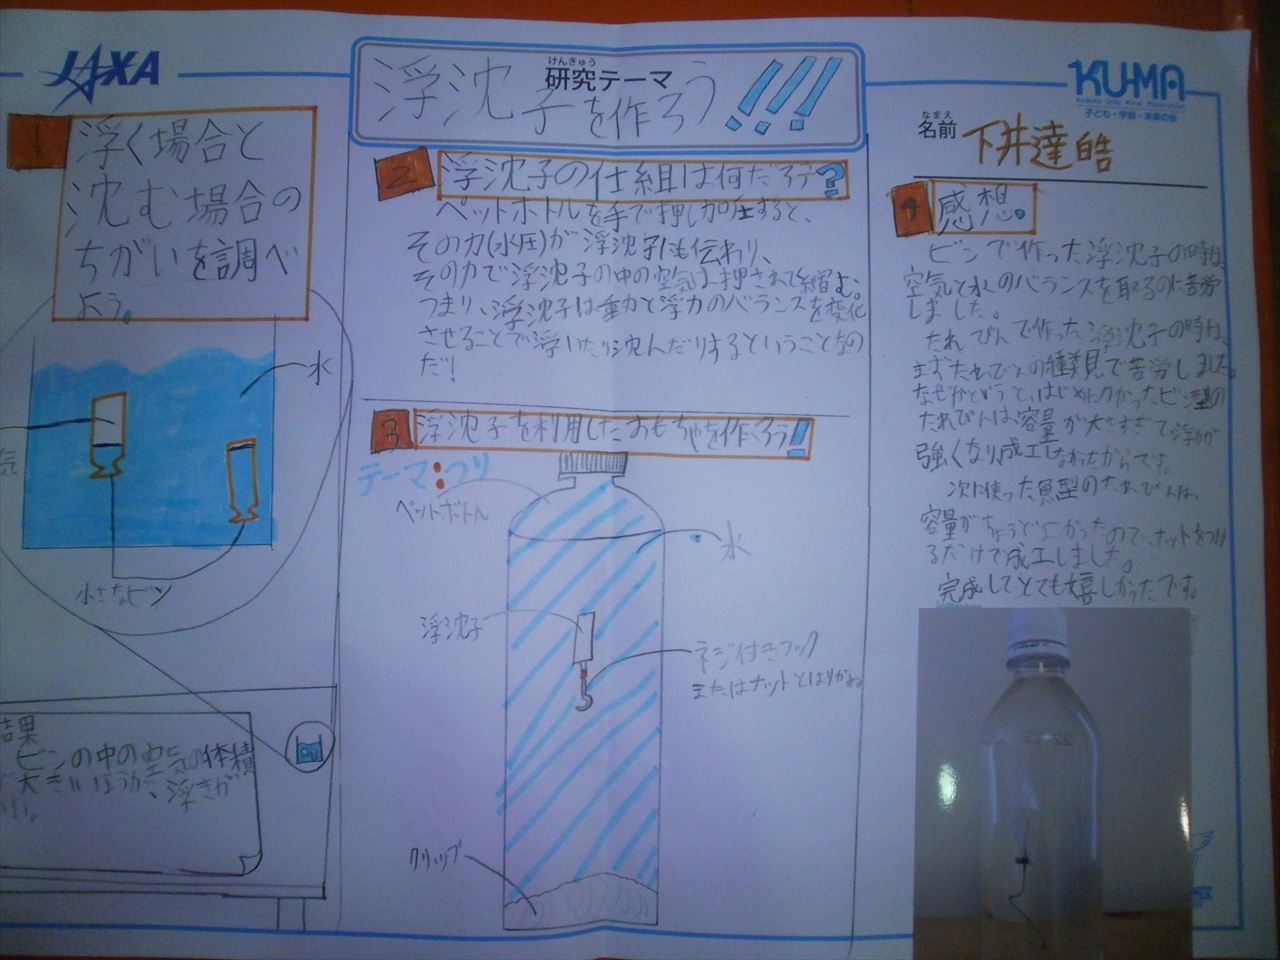 JAXA
けんきゅう
研究テーマ
浮沈子を作ろう!!!
KU-MA
子ども・宇宙・未来の会
なまえ
名前
下井達皓
1
浮く場合と
沈む場合の
ちがいを調べ
よう。
水
気
小さなビン
結果
ビンの中の空気の体積
が大きいほうが、浮きが
2
浮沈子の仕組は何だろう?
ペットボトルを手で押し加圧すると、
その力(水圧)が浮沈子にも伝わり、
その力で浮沈子の中の空気は押されて縮む。
つまり、浮沈子は重力と浮力のバランスを変化
させることで浮いたり沈んだりするということなの
だ!
3
浮沈子を利用したおもちゃを作ろう!
テーマ:つり
ペットボトル
水
浮沈子
ネジ付きフック
またはナットとはりがね
クリップ
4
感想。
ビンで作った浮沈子の時は、
空気と水のバランスを取るのに苦労
しました。
たれびんで作った浮沈子の時は、
まずたれびんの種類で苦労しました。
なぜかというと、はじめにつかったビン型の
たれびんは、容量が大きすぎて浮力が
強くなり、成工しなかったからです。
次に使った魚型のたれびんは、
容量がちょうどよかったので、ナットをつけ
るだけで成工しました。
完成してとても嬉しかったです。